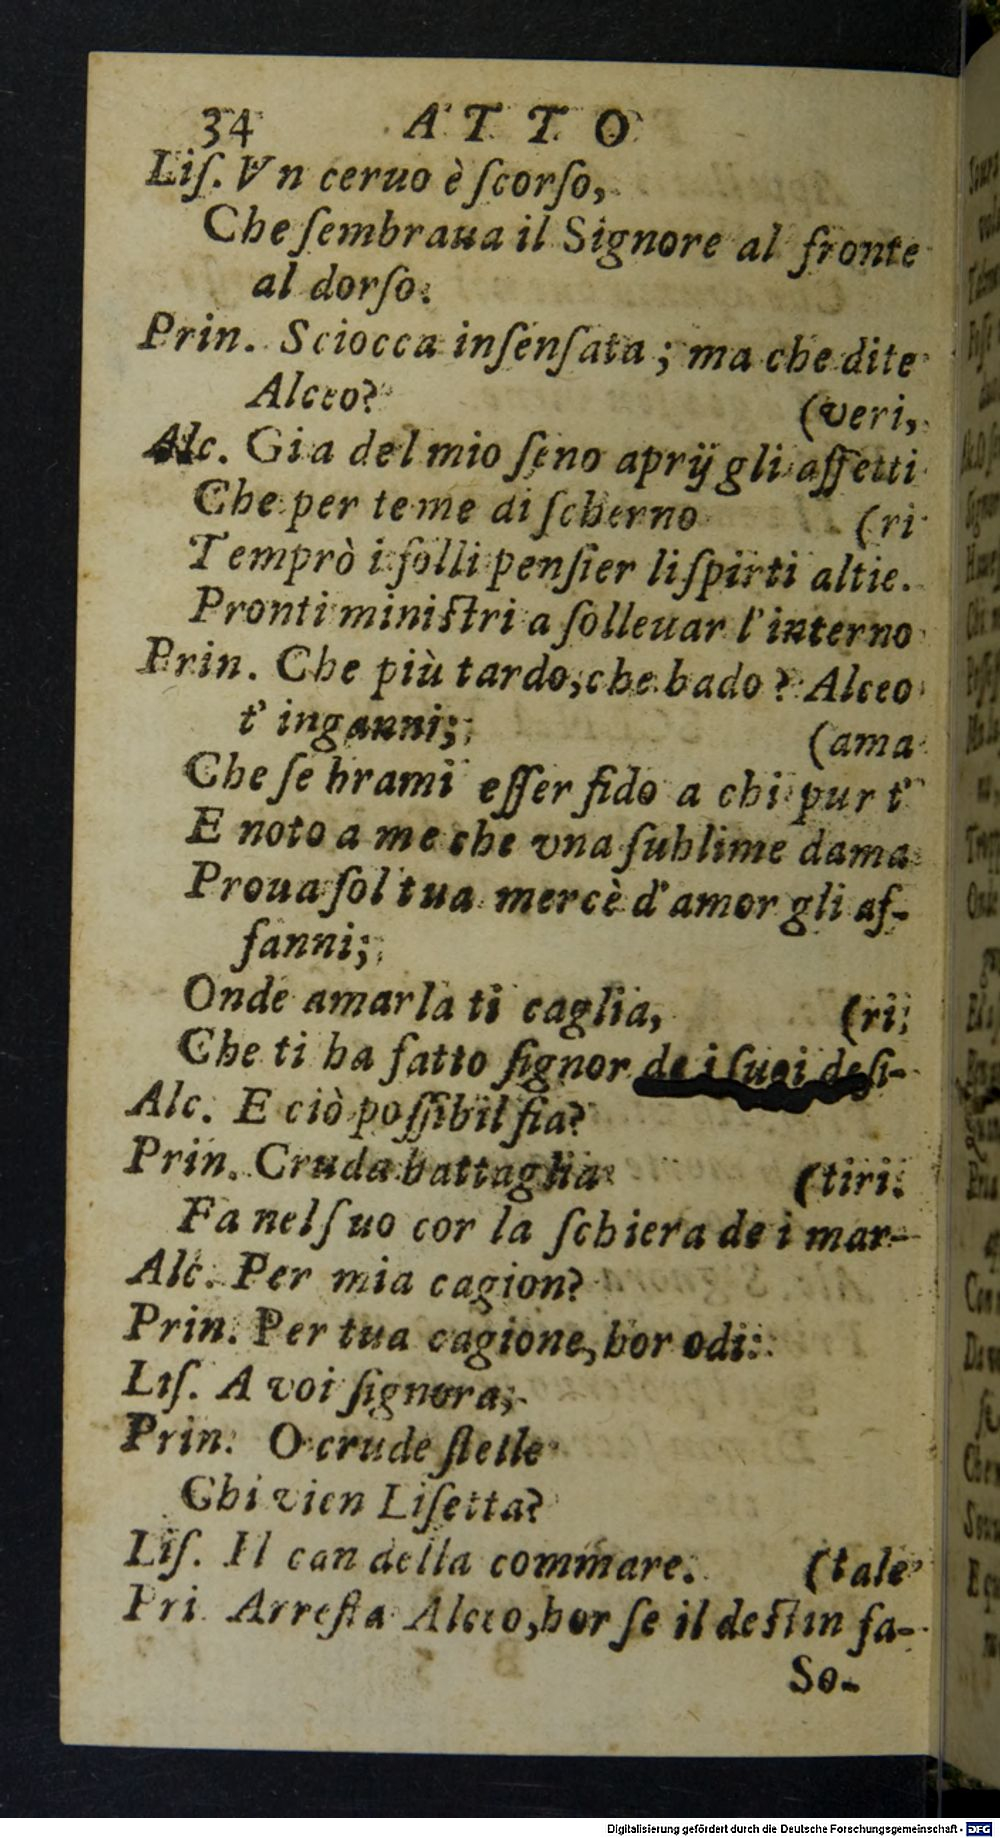 34 ATTO
Liſ. Vn ceruo è ſcorſo,
Che ſembraua il Signore al fronte
al dorſo.
Prin. Sciocca inſenſata; ma che dite
Alceo? (veri,
Alc. Gia del mio ſeno aprij gli affetti
Che per teme di ſcherno (ri
Temprò i folli penſier li ſpirti altie.
Pronti miniſtri a ſolleuar l'interno
Prin. Che più tardo, che bado? Alceo
t'inganni; (ama
Che ſe brami eſſer fido a chi pur t'
E noto a me che vna ſublime dama
Proua ſol tua mercè d'amor gli af-
fanni;
Onde amarla ti caglia, (ri.
Che ti ha fatto ſignor de i ſuoi deſi-
Alc. E ciò poſſibil fia?
Prin. Cruda battaglia (tiri.
Fa nel ſuo cor la ſchiera de i mar-
Alc. Per mia cagion?
Prin. Per tua cagione, hor odi:
Liſ. A voi ſignora;
Prin. O crude ſtelle
Chi vien Liſetta?
Liſ. Il can della commare. (tale
Pri. Arreſta Alceo, hor ſe il deſtin fa-
So-
Digitalisierung gefördert durch die Deutsche Forschungsgemeinschaft - DFG